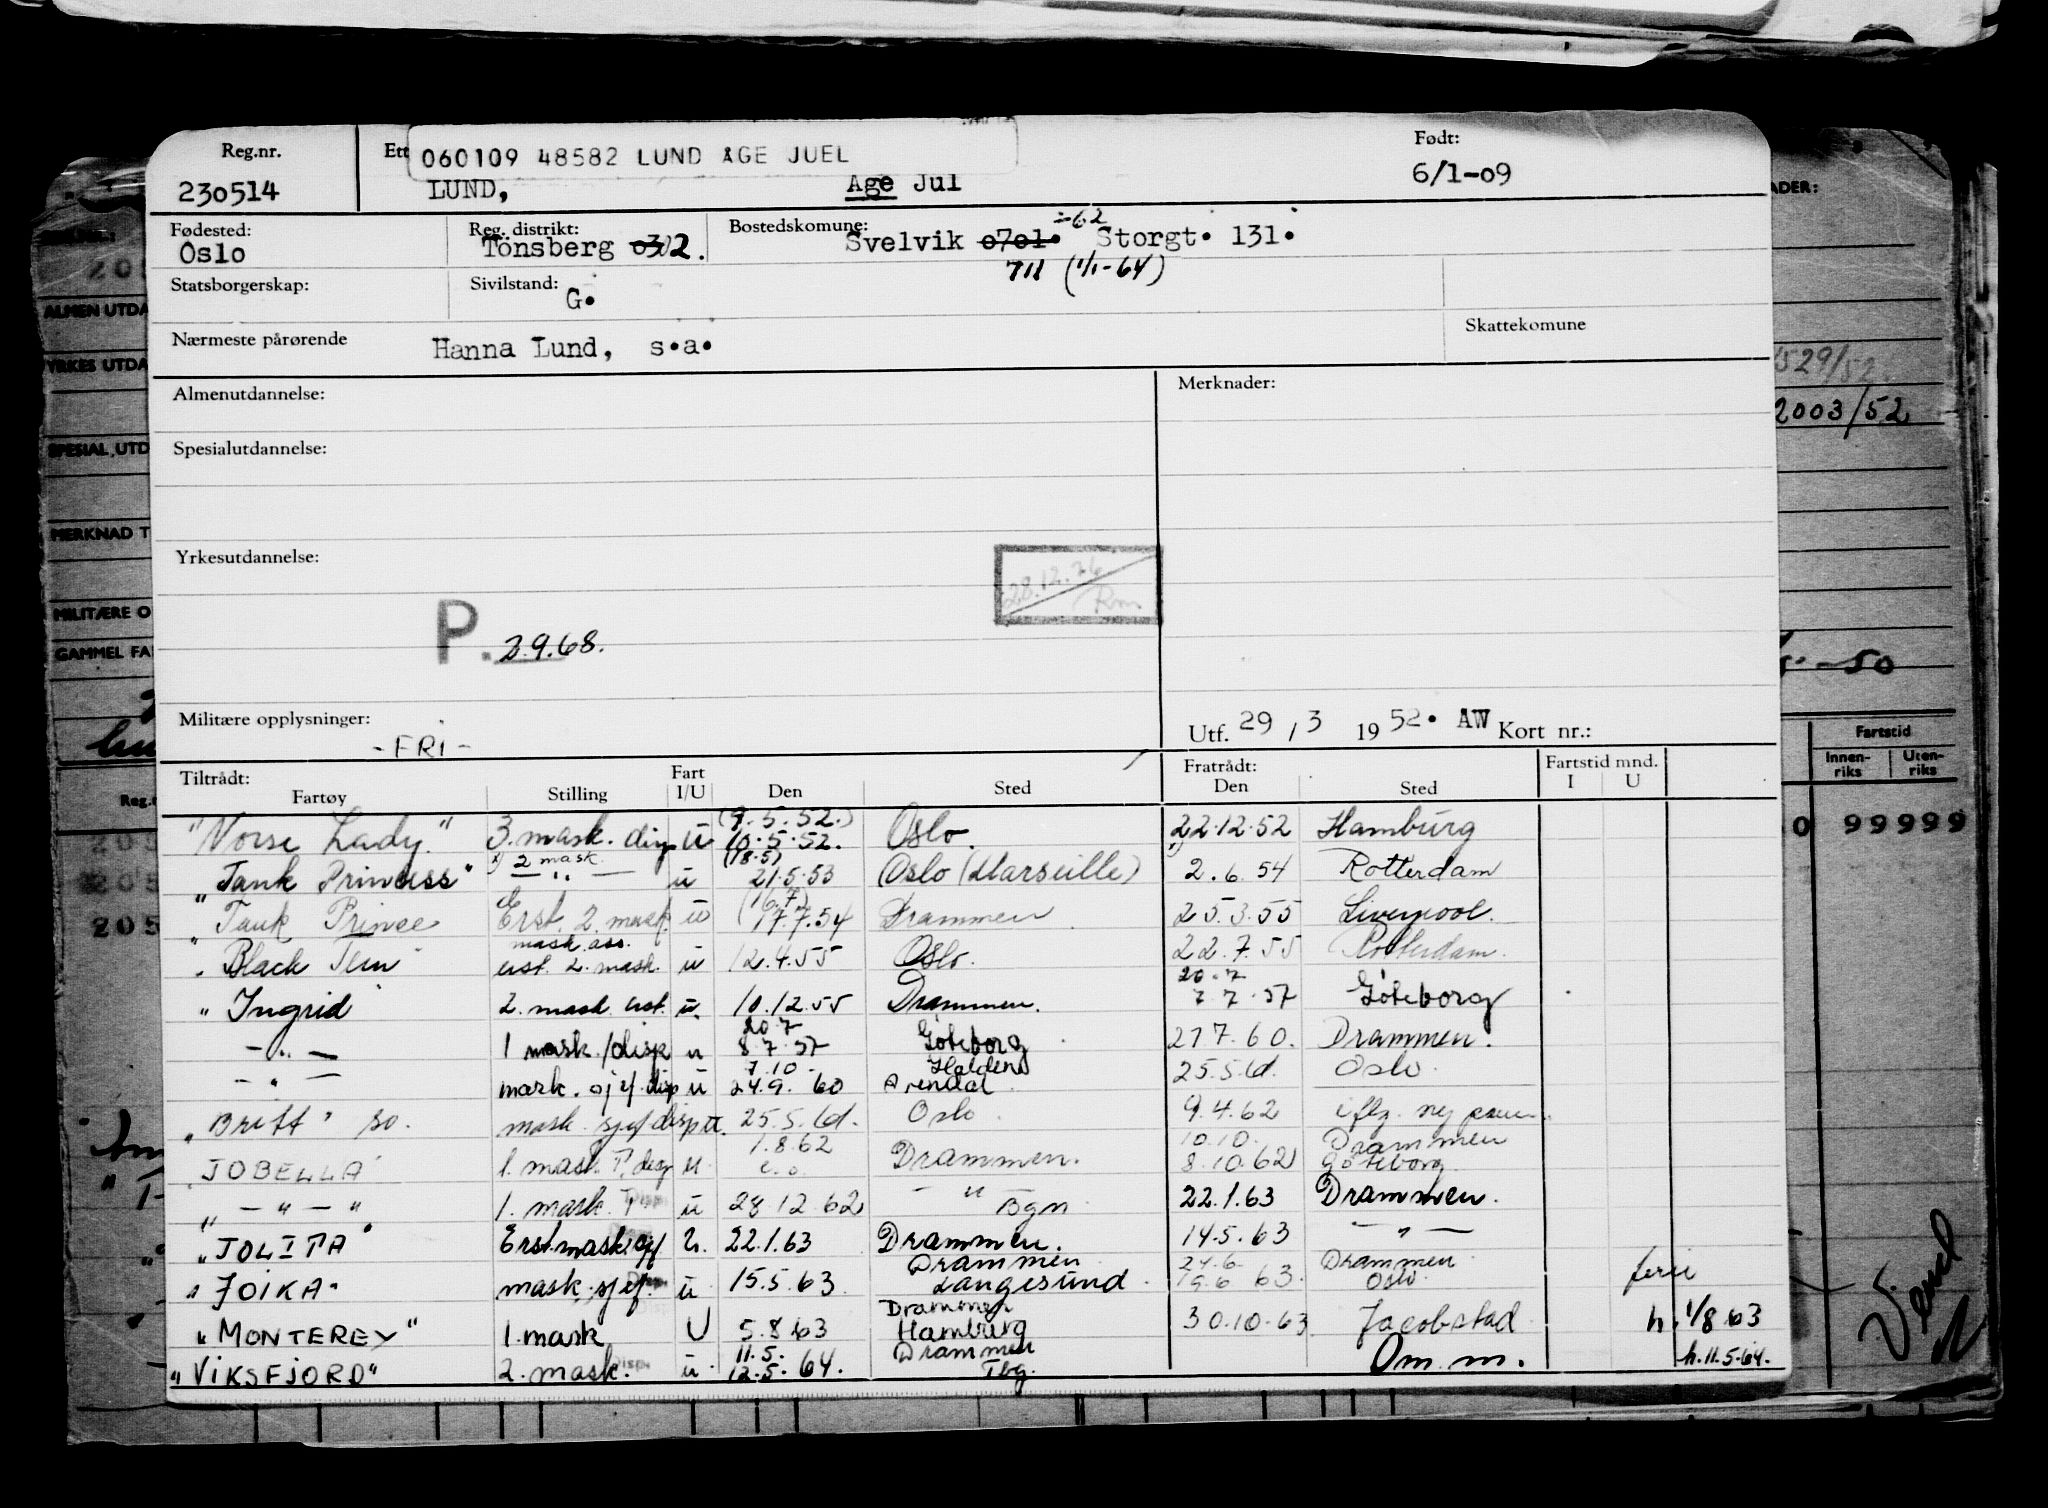 Reg.nr. Ett 060109 48582 LUND ÅGE JUEL Født:
230514 LUND, Age Jul 6/1-09
Fødested: Reg. distrikt: Bostedskomune: -62
Oslo Tönsberg 0302. Svelvik o7o1. Storgt. 131.
711 (1/1-64)
Statsborgerskap: Sivilstand: G.
Nærmeste pårørende Hanna Lund, s.a. Skattekomune
Almenutdannelse: Merknader:
Spesialutdannelse:
Yrkesutdannelse:
28.12.76
Rm
P. 2.9.68.
Militære opplysninger: -FRI- Utf. 29/3 1952. AW Kort nr.:
Tiltrådt: Fart Fratrådt: Fartstid mnd.
Fartøy Stilling I/U Den Sted Den Sted I U
(9.5.52.)
"Norse Lady" 3. mask. disp u 10.5.52. Oslo. 22.12.52 Hamburg
2 mask. (18.5)
"Tank Princess" — " — u 21.5.53 Oslo (Marseille) 2.6.54 Rotterdam
(16.7)
"Tank Prince Erst. 2. mask. u 17.7.54 Drammen 25.3.55 Liverpool.
mask. ass.
"Black Tern" erst. 2. mask. u 12.4.55 Oslo. 22.7.55 Rotterdam.
20.7
"Ingrid" 2. mask. erst. u. 10.12.55 Drammen. 7.7.57 Göteborg
20.7
— " — 1 mask./disp u 8.7.57 Göteborg 27.7.60. Drammen.
7.10. Halden
— " — mask. sjef. disp u 24.9.60 Arendal 25.5.61. Oslo.
"Britt" so. mask. sjef disp u. 25.5.61. Oslo. 9.4.62 i flg. ny
1.8.62 10.10. Drammen
"JOBELLA" 1. mask. T. disp u. e.o. Drammen. 8.10.62 Göteborg.
" — " — " 1. mask. T. Disp. u 28.12.62 — " — Bgn 22.1.63 Drammen.
"JOLITA" Erst.mask.sjef u. 22.1.63 Drammen. 14.5.63 — " —
Drammen 24.6. Drammen
"JOIKA" mask.sjef. Disp. u 15.5.63. Langesund. 19.6.63. Oslo. ferie
Drammen
"MONTEREY" 1. mask U 5.8.63 Hamburg 30.10.63 Jacobstad h. 1/8 63
11.5. Drammen
"VIKSFJORD" 2. mask. Disp. u. 12.5.64. Tbg. Om. m. h. 11.5.64.
ALMEN UTDA
YRKES UTDA
SPESIAL, UTD
MERKNAD T
MILITÆRE O
GAMMEL FA
Reg.
205
205
205
ADER:
529/52
2003/52
-50
Fartstid
Innen-riks Uten-riks
0 99999
Vend